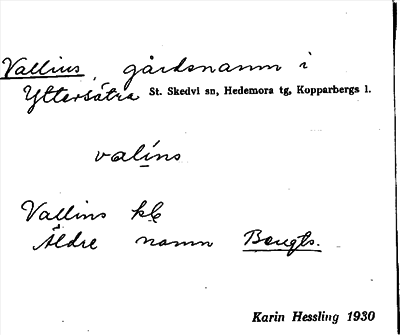 Vallins, gårdsnamn i
Yttersätra St. Skedvi sn, Hedemora tg, Kopparbergs l.
valíns
Vallins
Äldre namn Bengts.
Karin Hessling 1930